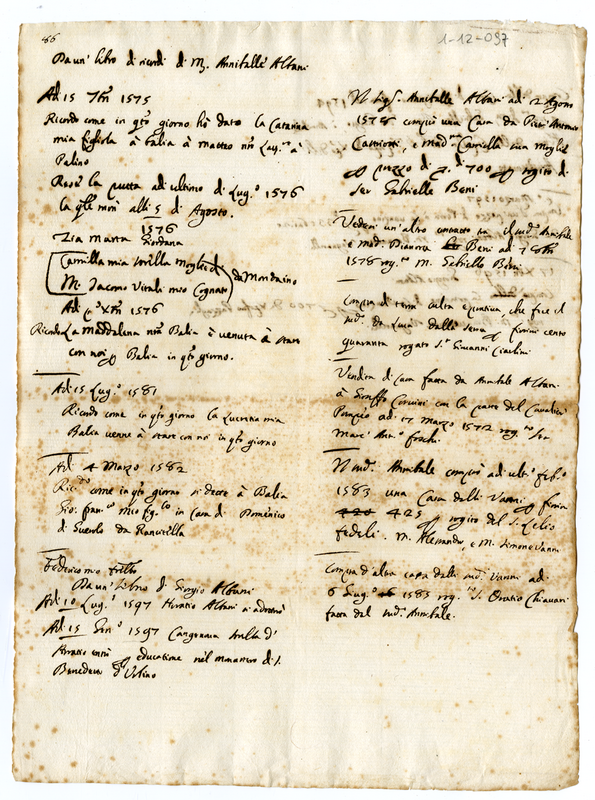 86
1-12-097
Da un' libro di ricordi di M. Annibale Albani
Ad 15 7bre 1575
Ricordo come in qto giorno hò dato la Caterina
mia figliola à balia à Matteo
Palino
la putta ad ultimo di Lug.o 1576
la qle morì alli 5 di Agosto.
1576
Zia Marta Giordana
Camilla mia sorella moglie di
M. Jacomo Vitali mio Cognato
da Mondaino
Ad p.o Xbre 1576
Ricordo la Maddalena nra Balia è venuta à stare
con noi p Balia in qto giorno.
Ad 15 Lug.o 1581
Ricordo come in qto giorno la Lucretia mia
Balia venne à stare con noi in qto giorno
Ad 4 Marzo 1582
Ric.do come in qto giorno si dette à Balia
Gio: Fran.co mio fig.lo in casa di Domenico
di da
Federico mio frello
Da un' Libro di Giorgio Albani
Ad 10 Lug.o 1597 Horatio Albani si
Ad 15 1597 sorella d'
Horatio entrò p educatione nel monastero di S.
Benedetto d'Urbino
Il Sig.r Annibale Albani ad 2 Agosto
1578 comprò una Casa da Pietr' Antonio
e mad.na Camilla sua moglie
p prezzo di 700 p rogito di
Ser Gabrielle Beni
Vedesi un'altro contratto tra il md.o Annibale
e mad. Beni ad 7
1578 rog.to M. Gabriello Beni.
Compra di terra culta che fece il
md.o da Luca dalla p fiorini cento
quaranta rogato S.r Giovanni Ciarlini
Vendita di casa fatta da Annibale Albani
à Corvini con la parte del Cavalier
Pompeo ad 17 Marzo 1572 rog.to Ser
Marc' Ant.o
Il md. Annibale comprò ad ult.o feb.o
1583 una Casa dalli Vanni p fiorini
420 425 p rogito del S. Lelio
fedeli. M. Alessandro, e M. Simone Vanni
Compra d'altra casa dalli md.i Vanni ad
6 Giug.o 1583 rog.to S. Oratio Chiavari
fatta dal md.o Annibale.